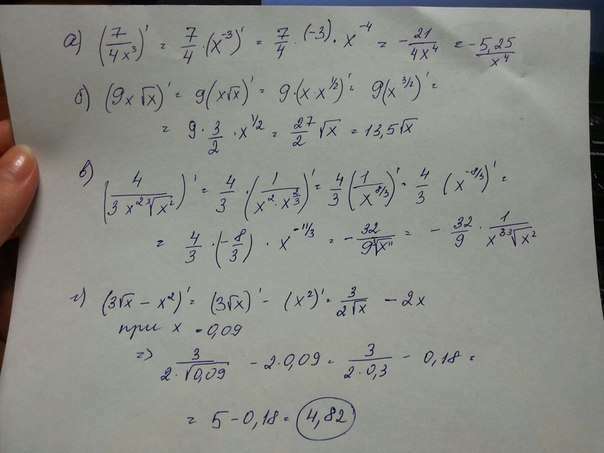 а) (7/4x³)' = 7/4 · (x⁻³)' = 7/4 · (-3) · x⁻⁴ = - 21/4x⁴ = -5,25/x⁴
б) (9x√x)' = 9(x√x)' = 9·(x·x^1/2)' = 9(x^3/2)' =
= 9 · 3/2 · x^1/2 = 27/2 √x = 13,5√x
в) (4/3x²∛x²)' = 4/3 · (1/x²·x^2/3)' = 4/3 (1/x^8/3)' = 4/3 (x^-8/3)' =
= 4/3 · (-8/3) · x^-11/3 = - 32/9∛x¹¹ = - 32/9 · 1/x³∛x²
г) (3√x - x²)' = (3√x)' - (x²)' = 3/2√x - 2x
при x = 0,09
=> 3/2·√0,09 - 2·0,09 = 3/2·0,3 - 0,18 =
= 5 - 0,18 = 4,82